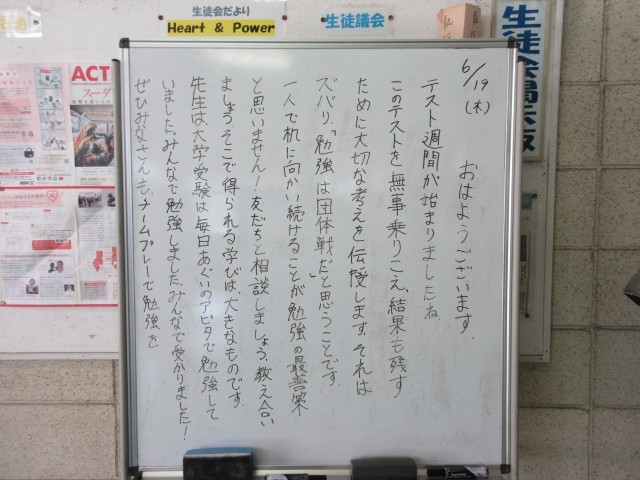 生徒会だより
Heart & Power
生徒議会
ACT
スーダ
6/19(木)
おはようございます。
テスト週間が始まりましたね。
このテストを無事乗りこえ、結果も残す
ために大切な考えを伝授します。それは
ズバリ、「勉強は団体戦だ」と思うことです。
一人で机に向かい続けることが勉強の最善策
と思いません!友だちと相談しましょう。教え合い
ましょう。そこで得られる学びは、大きなものです。
先生は大学受験は毎日あぐいのアピタで勉強して
いました。みんなで勉強しました。みんなで受かりました!
ぜひみなさんも、チームプレーで勉強を